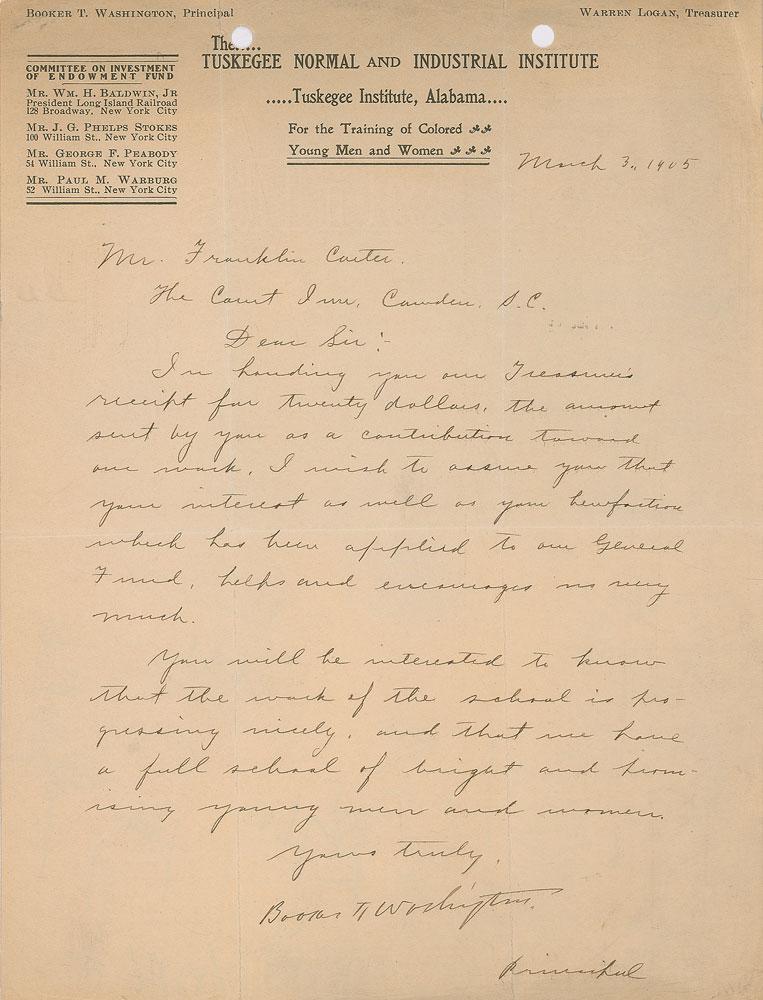 BOOKER T. WASHINGTON, Principal
WARREN LOGAN, Treasurer
The.....
TUSKEGEE NORMAL AND INDUSTRIAL INSTITUTE
.....Tuskegee Institute, Alabama....
For the Training of Colored
Young Men and Women
COMMITTEE ON INVESTMENT
OF ENDOWMENT FUND
MR. WM. H. BALDWIN, JR
President Long Island Railroad
128 Broadway, New York City
MR. J. G. PHELPS STOKES
100 William St., New York City
MR. GEORGE F. PEABODY
54 William St., New York City
MR. PAUL M. WARBURG
52 William St., New York City
March 3., 1905
Mr. Franklin Carter.
The Court Inn, Camden, S.C.
Dear Sir:-
In handing you our Treasurer's
receipt for twenty dollars, the amount
sent by you as a contribution toward
our work, I wish to assure you that
your interest as well as your benefaction
which has been applied to our General
Fund, helps and encourages us very
much.
You will be interested to know
that the work of the school is pro-
gressing nicely, and that we have
a full school of bright and prom-
ising young men and women.
Yours truly,
Booker T. Washington.
Principal